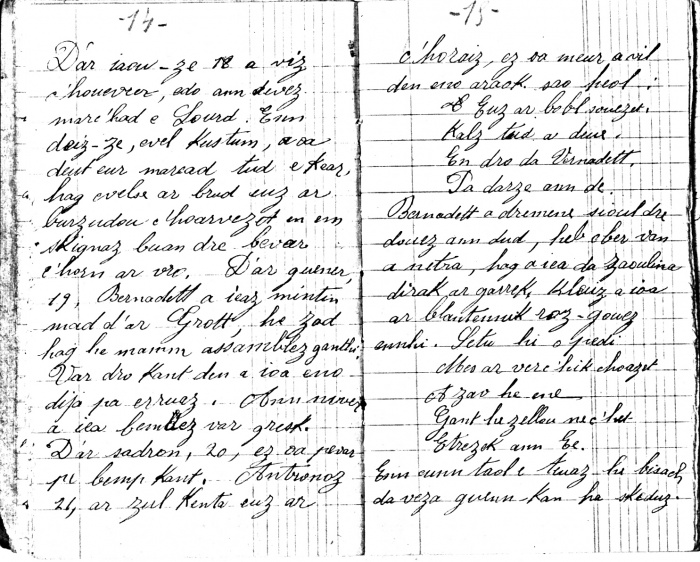 -14-
D'ar iaou-ze 18 a viz
c'houevrer, edo ann devez
marc'had e Lourd. Enn
deiz-ze, evel kustum, a oa
deut eur maread tud e kear,
hag evelse ar brud euz ar
burzudou c'hoarvezet en em
skignaz buan dre bevar
c'horn ar vro. D'ar guener,
19, Bernadett a ieaz mintin
mad d'ar Grott, he zad
hag he mamm assamblez ganthi.
Var dro kant den a ioa eno
dija pa erruaz. Ann niver
a iea bemdez var gresk.
D'ar sadron, 20, ez oa pevar
pe bemp kant. Antronoz
21, ar zul kenta euz ar
-15-
c'horaiz, ez oa meur a vil
den eno araok sao heol :
Euz ar bobl souezet.
Kalz tud a deue.
En dro da Vernadett.
Ta darze ann de.
Bernadett a dremene sioul dre
douez ann dud, heb ober van
a netra, hag a iea da zaoulina
dirak ar garrek. Klouz a ioa
ar blantennik roz-gouez
ennhi. Setu hi o pedi
Mes ar verc'hik choazet
A zav he ene
Gant he zellou nec'het
Etrezek ann Ee.
Enn eunn taol e teuaz he bisach
da veza guenn-kan ha skeduz.